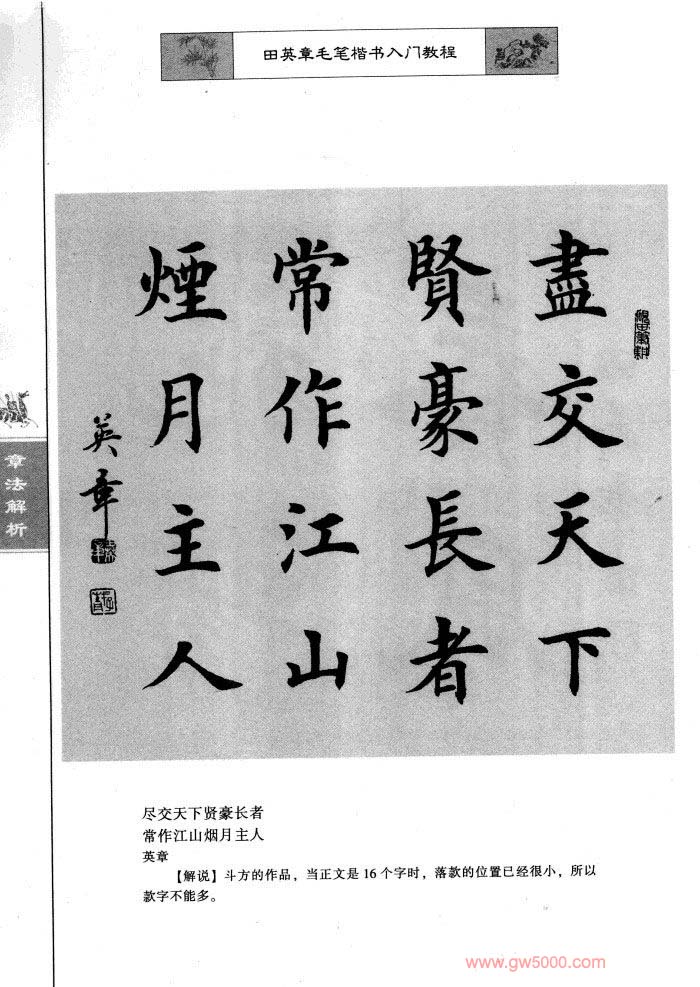 田英章毛笔楷书入门教程
盡交天下
賢豪長者
常作江山
煙月主人
英章
章法解析
尽交天下贤豪长者
常作江山烟月主人
英章
【解说】斗方的作品，当正文是16个字时，落款的位置已经很小，所以
款字不能多。
www.gw5000.com